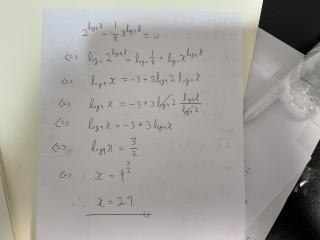 2^{log₉x} - \frac{1}{8} x^{log₉8} = 0
⇔ log₂ 2^{log₉x} = log₂ \frac{1}{8} + log₂ x^{log₉8}
⇔ log₉ x = -3 + 3 log₉ 2 log₂ x
⇔ log₉ x = -3 + 3 log₉ 2 \frac{log₉ x}{log₉ 2}
⇔ log₉ x = -3 + 3 log₉ x
⇔ log₉ x = \frac{3}{2}
⇔ x = 9^{\frac{3}{2}}
∴ x = 27